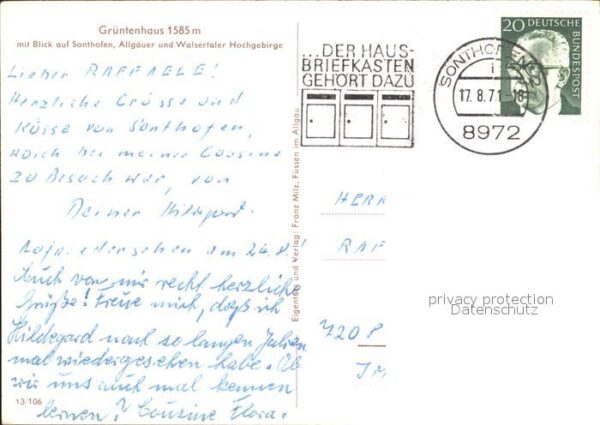 Grüntenhaus 1585 m
mit Blick auf Sonthofen, Allgäuer und Walsertaler Hochgebirge
Lieber RAFFAELE!
Herzliche Grüsse und
Küsse von Sonthofen,
wo ich bei meiner Cousine
zu Besuch war, von
Deiner Hildegard.
Auf Wiedersehen am 24.8.!
Auch von mir recht herzliche
Grüße! Freue mich, daß ich
Hildegard nach so langen Jahren
mal wiedergesehen habe. Ob
wir uns auch mal kennen
lernen? Cousine Flora.
13/106
Eigentum und Verlag: Franz Milz, Füssen im Allgäu
...DER HAUS-
BRIEFKASTEN
GEHÖRT DAZU
SONTHOFEN 2
17.8.71-18
8972
20 DEUTSCHE
BUNDESPOST
HERR
RAF
720 P
IM
privacy protection
Datenschutz